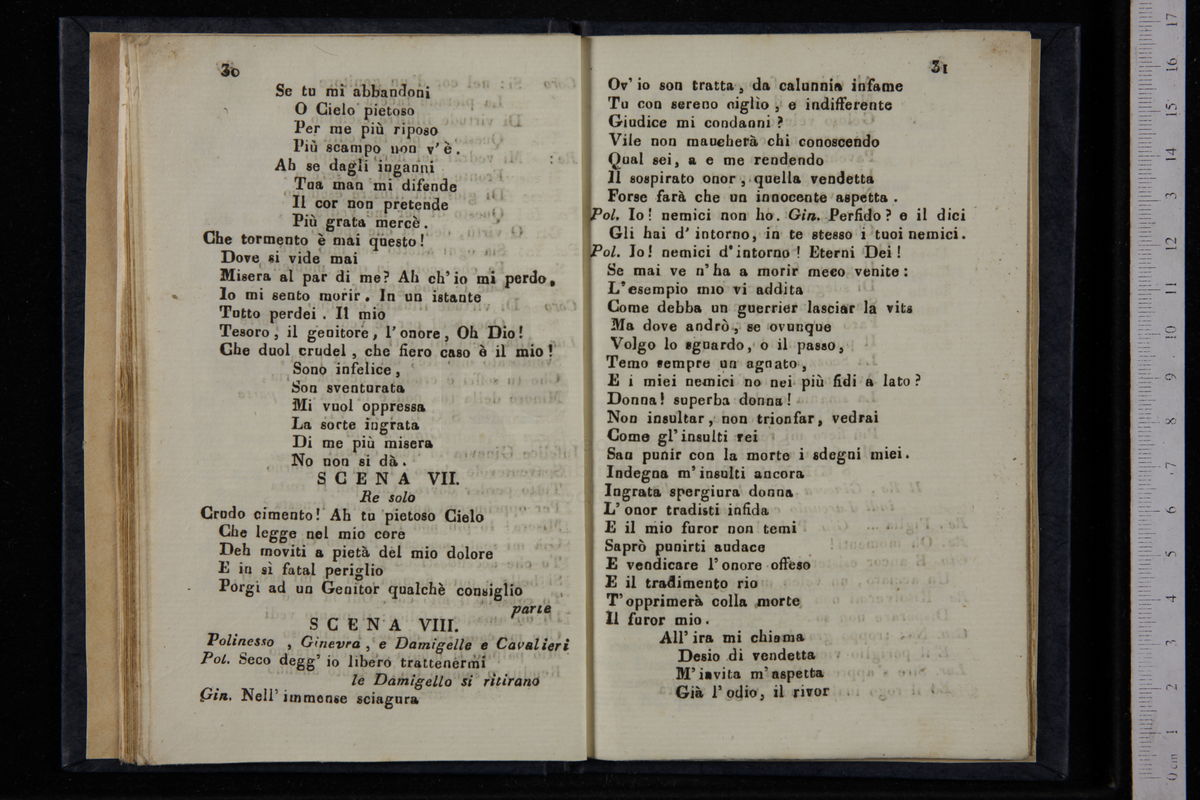 30
Se tu mi abbandoni
O Cielo pietoso
Per me più riposo
Più scampo non v'è.
Ah se dagli inganni
Tua man mi difende
Il cor non pretende
Più grata mercè.
Che tormento è mai questo!
Dove si vide mai
Misera al par di me? Ah ch'io mi perdo,
Io mi sento morir. In un istante
Tutto perdei. Il mio
Tesoro, il genitore, l'onore, Oh Dio!
Che duol crudel, che fiero caso è il mio!
Sono infelice,
Son sventurata
Mi vuol oppressa
La sorte ingrata
Di me più misera
No non si dà.
SCENA VII.
Re solo
Crudo cimento! Ah tu pietoso Cielo
Che legge nel mio core
Deh moviti a pietà del mio dolore
E in sì fatal periglio
Porgi ad un Genitor qualchè consiglio
parte
SCENA VIII.
Polinesso, Ginevra, e Damigelle e Cavalieri
Pol. Seco degg' io libero trattenermi
le Damigelle si ritirano
Gin. Nell' immense sciagura
31
Ov' io son tratta, da calunnia infame
Tu con sereno niglio, e indifferente
Giudice mi condanni?
Vile non maucherà chi conoscendo
Qual sei, a e me rendendo
Il sospirato onor, quella vendetta
Forse farà che un innocente aspetta.
Pol. Io! nemici non ho. Gin. Perfido? e il dici
Gli hai d' intorno, in te stesso i tuoi nemici.
Pol. Io! nemici d'intorno! Eterni Dei!
Se mai ve n'ha a morir meco venite:
L'esempio mio vi addita
Come debba un guerrier lasciar la vita
Ma dove andrò, se ovunque
Volgo lo sguardo, o il passo,
Temo sempre un agnato,
E i miei nemici no nei più fidi a lato?
Donna! superba donna!
Non insultar, non trionfar, vedrai
Come gl'insulti rei
San punir con la morte i sdegni miei.
Indegna m'insulti ancora
Ingrata spergiura donna
L'onor tradisti infida
E il mio furor non temi
Saprò punirti audace
E vendicare l'onore offeso
E il tradimento rio
T'opprimerà colla morte
Il furor mio.
All' ira mi chiama
Desio di vendetta
M'invita m'aspetta
Già l'odio, il rivor